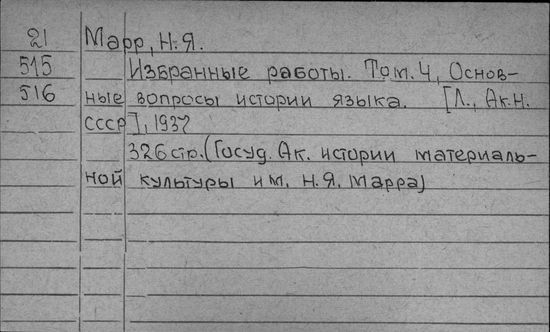 21 Марр, Н.Я.
515 Избранные работы. Том. 4, Основ-
516 ные вопросы истории языка. [Л., Ак.Н.
СССР], 1937
326 стр. (Госуд. Ак. истории материаль-
ной культуры им. Н.Я. Марра)